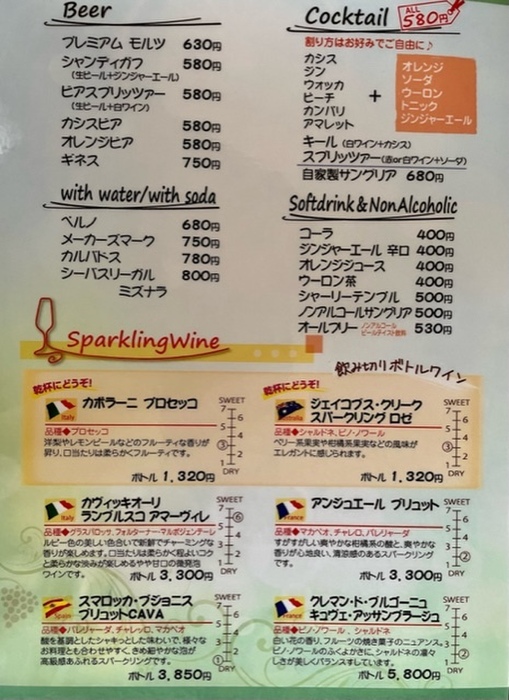 Beer
プレミアム モルツ 630円
シャンディガフ 580円
(生ビール+ジンジャーエール)
ビアスプリッツァー 580円
(生ビール+白ワイン)
カシスビア 580円
オレンジビア 580円
ギネス 750円
with water/with soda
ペルノ 680円
メーカーズマーク 750円
カルバドス 780円
シーバスリーガル 800円
ミズナラ
Cocktail ALL 580円
割り方はお好みでご自由に♪
カシス
ジン
ウォッカ
ピーチ
カンパリ
アマレット
+
オレンジ
ソーダ
ウーロン
トニック
ジンジャーエール
キール (白ワイン+カシス)
スプリッツァー(赤or白ワイン+ソーダ)
自家製サングリア 680円
Softdrink&NonAlcoholic
コーラ 400円
ジンジャーエール 辛口 400円
オレンジジュース 400円
ウーロン茶 400円
シャーリーテンプル 500円
ノンアルコールサングリア 500円
オールフリー ノンアルコール ビールテイスト飲料 530円
SparklingWine
飲み切りボトルワイン
乾杯にどうぞ!
Italy
カポラーニ プロセッコ
品種◆プロセッコ
洋梨やレモンピールなどのフルーティな香りが
昇り、口当たりは柔らかくフルーティです。
ボトル 1,320円
SWEET
7
6
5
4
③
2
1
DRY
乾杯にどうぞ!
Australia
ジェイコブス・クリーク
スパークリング ロゼ
品種◆シャルドネ、ピノ・ノワール
ベリー系果実や柑橘系果実などの風味が
エレガントに感じられます。
ボトル 1,320円
SWEET
7
6
5
4
③
2
1
DRY
Italy
カヴィッキオーリ
ランブルスコ アマーヴィレ
品種◆グラスパロッサ、フォルターナーマルボジェンティーレ
ルビー色の美しい色合いで新鮮でチャーミングな
香りが楽しめます。口当たりは柔らかく程よいコク
と柔らかな渋みが楽しめるやや甘口の微発泡
ワインです。
ボトル 3,300円
SWEET
7
⑥
5
4
3
2
1
DRY
France
アンジュエール ブリュット
品種◆マカベオ、チャレロ、パレリャーダ
すがすがしい爽やかな柑橘系の酸と、爽やかな
香りが心地良い、清涼感のあるスパークリング
です。
ボトル 3,300円
SWEET
7
6
5
4
3
②
1
DRY
Spain
スマロッカ・ブジョニス
ブリュットCAVA
品種◆パレリャーダ、チャレッロ、マカベオ
酸を基調としたシャキっとした味わいで、様々な
お料理とも合わせやすく、きめ細やかな泡が
高級感あふれるスパークリングです。
ボトル 3,850円
SWEET
7
6
5
4
3
2
①
DRY
France
クレマン・ド・ブルゴーニュ
キュヴェ・アッサンブラージュ
品種◆ピノ・ノワール 、シャルドネ
白い花の香り、フルーツの焼き菓子のニュアンス。
ピノ・ノワールのふくよかさに、シャルドネの凛々
しさが美しくバランスしています。
ボトル 5,800円
SWEET
7
6
5
4
3
②
1
DRY